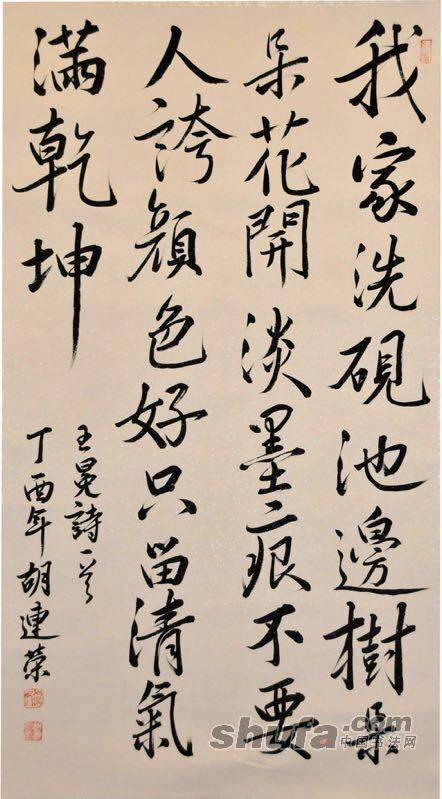 我家洗硯池邊樹朵
朵花開淡墨痕不要
人誇顏色好只留清氣
滿乾坤
王冕詩一首
丁酉年胡連榮
shufa.com
中国书法网